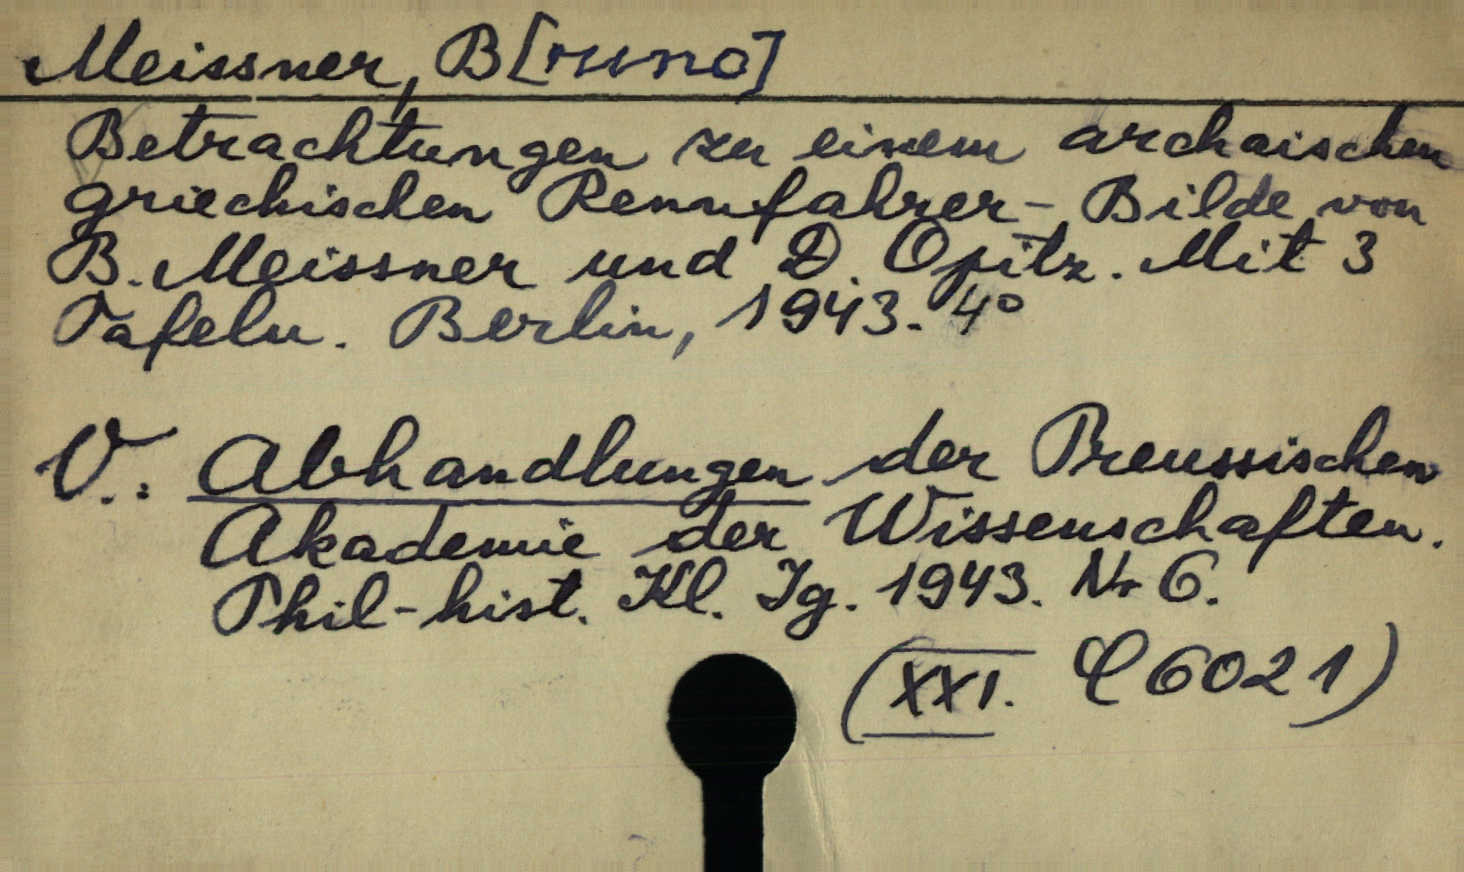 Meissner, B[runo]
Betrachtungen zu einem archaischen
griechischen Rennfahrer-Bilde von
B. Meissner und D. Opitz. Mit 3
Tafeln. Berlin, 1943. 4°
V.: Abhandlungen der Preussischen
Akademie der Wissenschaften.
Phil-hist. Kl. Jg. 1943. Nr 6.
(XXI. C 6021)